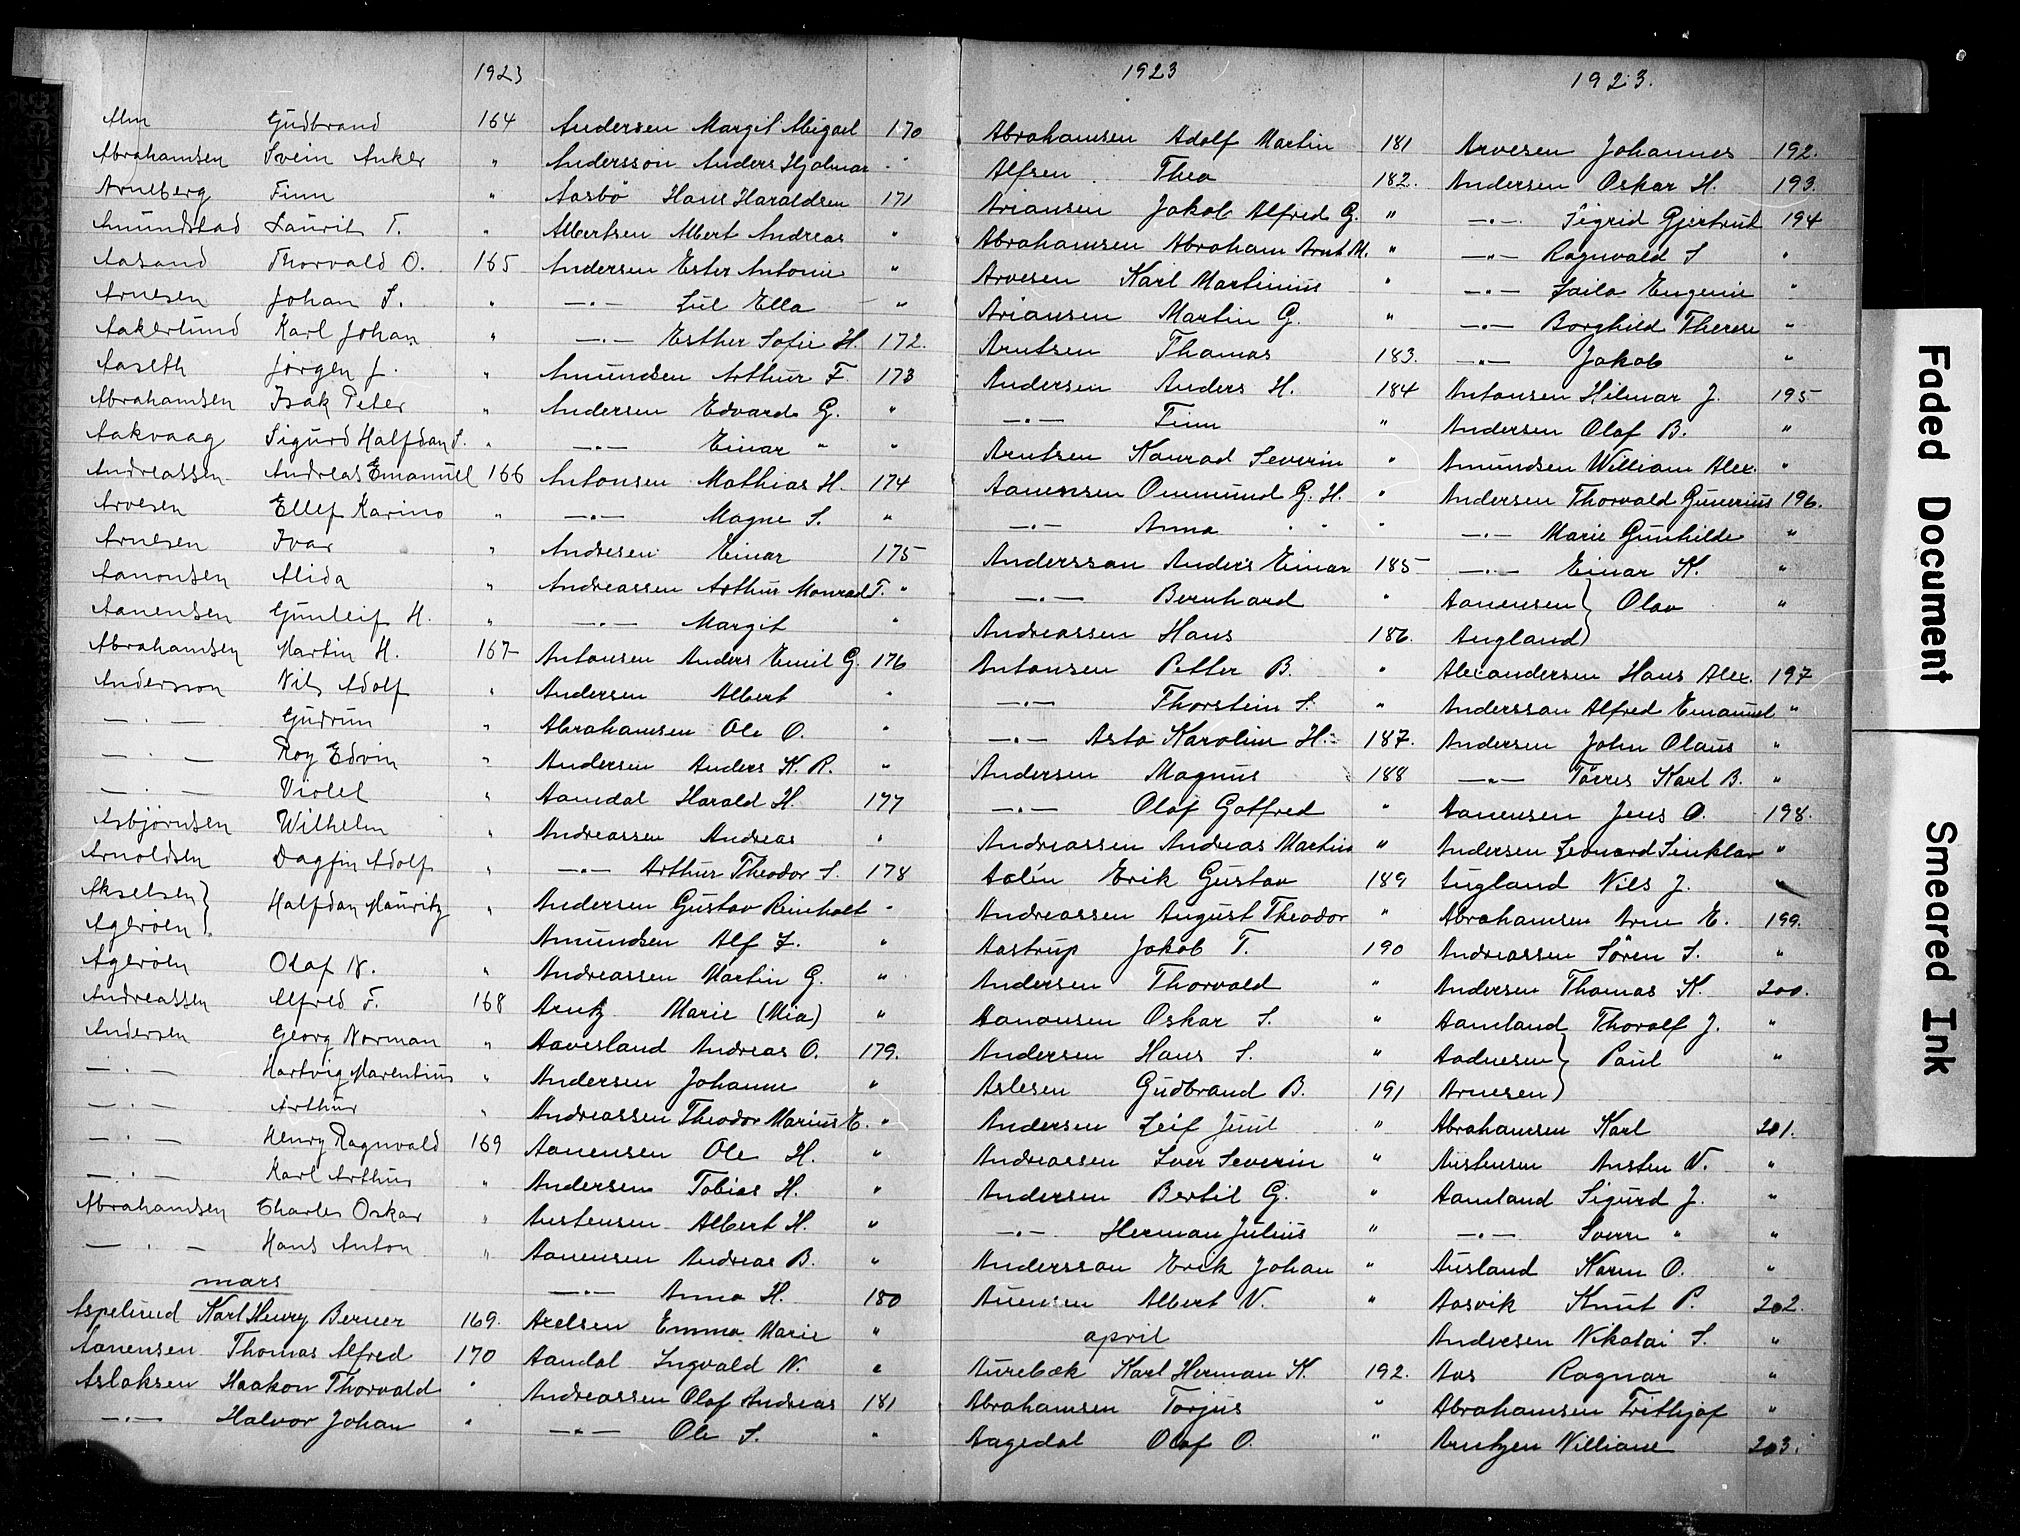 1923
Alm Gudbrand 164
Abrahamsen Svein Anker "
Arneberg Finn "
Amundstad Laurit T. "
Aasand Thorvald O. 165
Arnesen Johan S. "
Aakerlund Karl Johan "
Aaseth Jørgen J. "
Abrahamsen Isak Peter "
Aakvaag Sigurd Halfdan S. "
Andreassen Andreas Emanuel 166
Arvesen Ellef Karino "
Arnesen Ivar "
Aanonsen Alida "
Aanensen Gunleif H. "
Abrahamsen Martin H. 167
Andersson Nils Adolf "
— . — Gudrun "
— . — Roy Edvin "
— . — Violet "
Asbjørnsen Wilhelm "
Arnoldsen Dagfin Adolf "
Akselsen } Halfdan Mauritz "
Agerøen }
Agerøen Olaf N. "
Andreassen Alfred F. 168
Andersen Georg Norman "
— . — Hartvig Marentius "
— . — Arthur "
— . — Henry Ragnvald 169
— . — Karl Arthur "
Abrahamsen Charles Oskar "
— . — Hans Anton "
mars
Aspelund Karl Henry Berner 169.
Aanensen Thomas Alfred 170
Aslaksen Haakon Thorvald "
— . — Halvor Johan "
Andersen Margit Abigael 170
Andersson Anders Hjalmar "
Aasbö Hans Haraldsen 171
Albertsen Albert Andreas "
Andersen Ester Antonie "
— . — Lul Ella "
— . — Esther Sofie H. 172.
Amundsen Arthur F. 173
Andersen Edvard G. "
— . — Einar " "
Antonsen Mathias H. 174
— . — Magne S. "
Andresen Einar 175
Andreassen Arthur Monrad T. "
— . — Margit "
Antonsen Anders Emil G. 176
Andersen Albert "
Abrahamsen Ole O. "
Andersen Anders K. R. "
Aamdal Harald H. 177
Andreassen Andreas "
— . — Arthur Theodor S. 178
Andersen Gustav Reinholt "
Amundsen Alf L. "
Andreassen Martin G. "
Arntz Marie (Mia) "
Aavesland Andreas O. 179.
Andersen Johanne "
Andreassen Theodor Marius E. "
Aanensen Ole H. "
Andersen Tobias H. "
Austensen Albert H. "
Aanensen Andreas B. "
— . — Anna H. 180
Axelsen Emma Marie "
Aandal Ingvald N. "
Andreassen Olaf Andreas 181
— . — Ole S. "
1923
Abrahamsen Adolf Martin 181
Alfsen Thea 182.
Ariansen Jakob Alfred G. "
Abrahamsen Abraham Arnt M. "
Arvesen Karl Martinius "
Ariansen Martin G. "
Arntsen Thomas 183.
Andersen Anders H. 184
— . — Finn "
Arntsen Konrad Severin "
Aanensen Ommund G. H. "
— . — Anna "
Andersson Anders Einar 185
— . — Bernhard "
Andreassen Hans 186.
Antonsen Petter B. "
— . — Thorstein S. "
— . — Asta Karoline H. 187.
Andersen Magnus 188
— . — Olaf Gotfred "
Andreassen Andreas Martin "
Aalén Erik Gustav 189
Andreassen August Theodor "
Aastrup Jakob T. 190
Andersen Thorvald "
Aanonsen Oskar S. "
Andersen Hans S. "
Aslesen Gudbrand B. 191
Andersen Leif Juul "
Andreassen Iver Severin "
Andersen Bertil G. "
— . — Herman Julius "
Andersson Erik Johan "
Auensen Albert V. "
april
Aurebæk Karl Herman K. 192.
Abrahamsen Torjus "
Aagedal Olaf O. "
1923.
Arvesen Johannes 192.
Andersen Oskar H. 193.
— . — Sigrid Gjertrud 194
— . — Ragnvald S "
— . — Laila Eugenie "
— . — Borghild Therese "
— . — Jakob "
Antonsen Hilmar J. 195
Andersen Olaf B. "
Amundsen William Alex. "
Andersen Thorvald Gunerius 196.
— . — Marie Gunhilde "
— . — Einar K. "
Aanensen } Olav "
Augland }
Alexandersen Hans Alex. 197
Andersson Alfred Emanuel "
Andersen John Olaus "
— . — Törres Karl B. "
Aanensen Jens O. 198.
Andersen Leonard Sinklar "
Augland Nils J. "
Abrahamsen Arne E. 199.
Andreassen Sören S. "
Andersen Thomas K. 200.
Aamland Thoralf J. "
Aadnesen } Paul "
Arnesen }
Abrahamsen Karl 201.
Austensen Austen V. "
Aamland Sigurd J. "
— . — Sverre " "
Ausland Karen O. "
Aasvik Knut P. 202.
Andersen Nikolai S. "
Aas Ragnar "
Abrahamsen Frithjof "
Arntzen Williane 203.
Faded Document
Smeared Ink